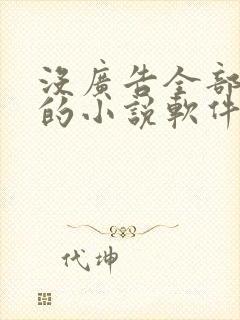 沒廣告全部
的小說軟件
代坤